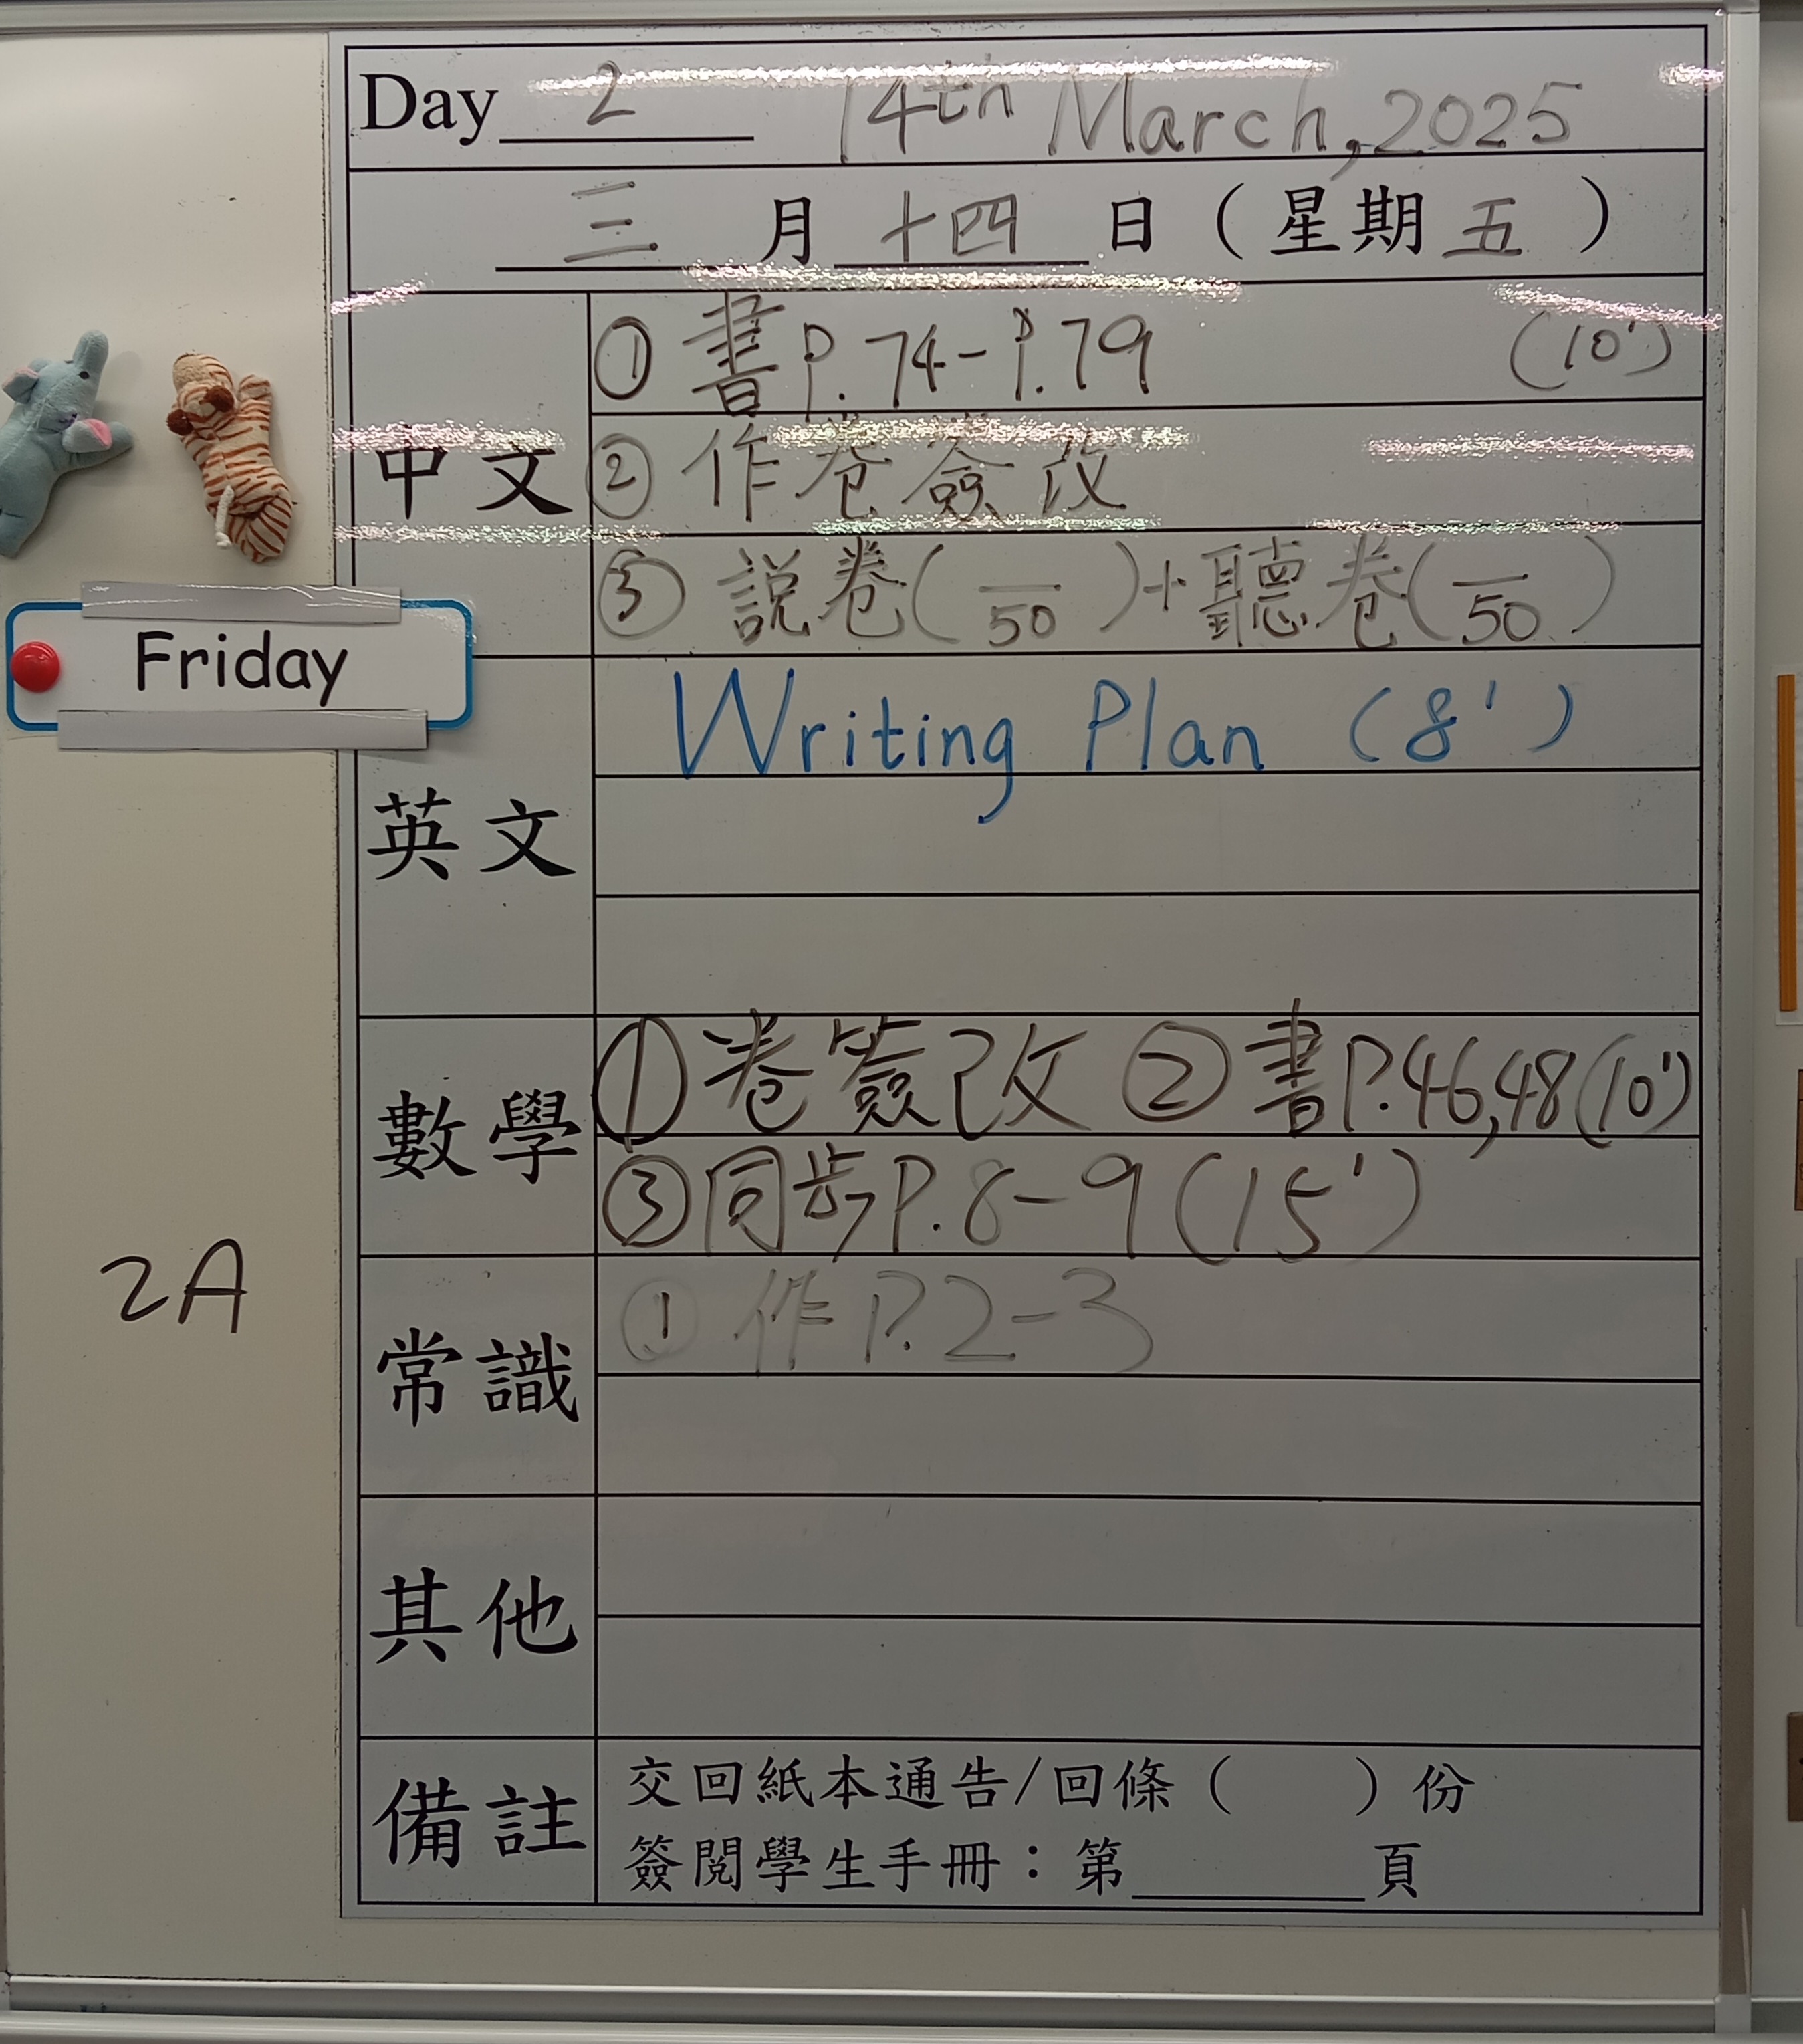 Day 2 14th March, 2025
三 月 十四 日 ( 星期 五 )
中文
① 書 P.74-P.79 (10')
② 作卷簽改
③ 説卷( /50 )+聽卷( /50 )
Friday
英文
Writing Plan (8')
數學
① 卷簽改 ② 書P.46,48(10')
③ 同步P.8-9(15')
2A
常識
① 作 P.2-3
其他
備註
交回紙本通告/回條( )份
簽閱學生手冊：第______頁